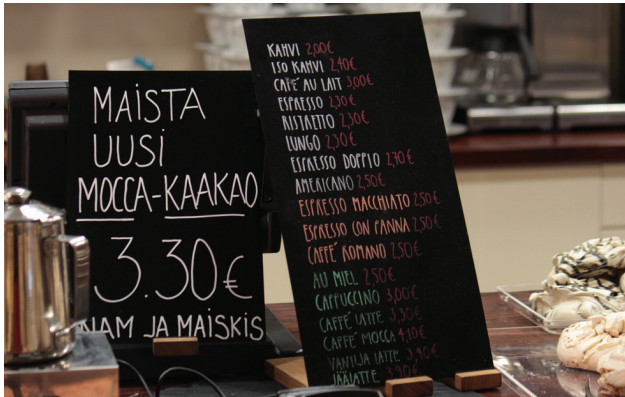 MAISTA
UUSI
MOCCA-KAAKAO
3.30€
NAM JA MAISKIS
KAHVI 2,00€
ISO KAHVI 2,40€
CAFE´ AU LAIT 3,00€
ESPRESSO 2,30€
RISTRETTO 2,30€
LUNGO 2,30€
ESPRESSO DOPPIO 2,70€
AMERICANO 2,50€
ESPRESSO MACCHIATO 2,50€
ESPRESSO CON PANNA 2,50€
CAFFE´ ROMANO 2,50€
AU MIEL 2,50€
CAPPUCCINO 3,00€
CAFFE´ LATTE 3,30€
CAFFE´ MOCCA 4,10€
VANILJA LATTE 3,90€
JÄÄLATTE 3,90€